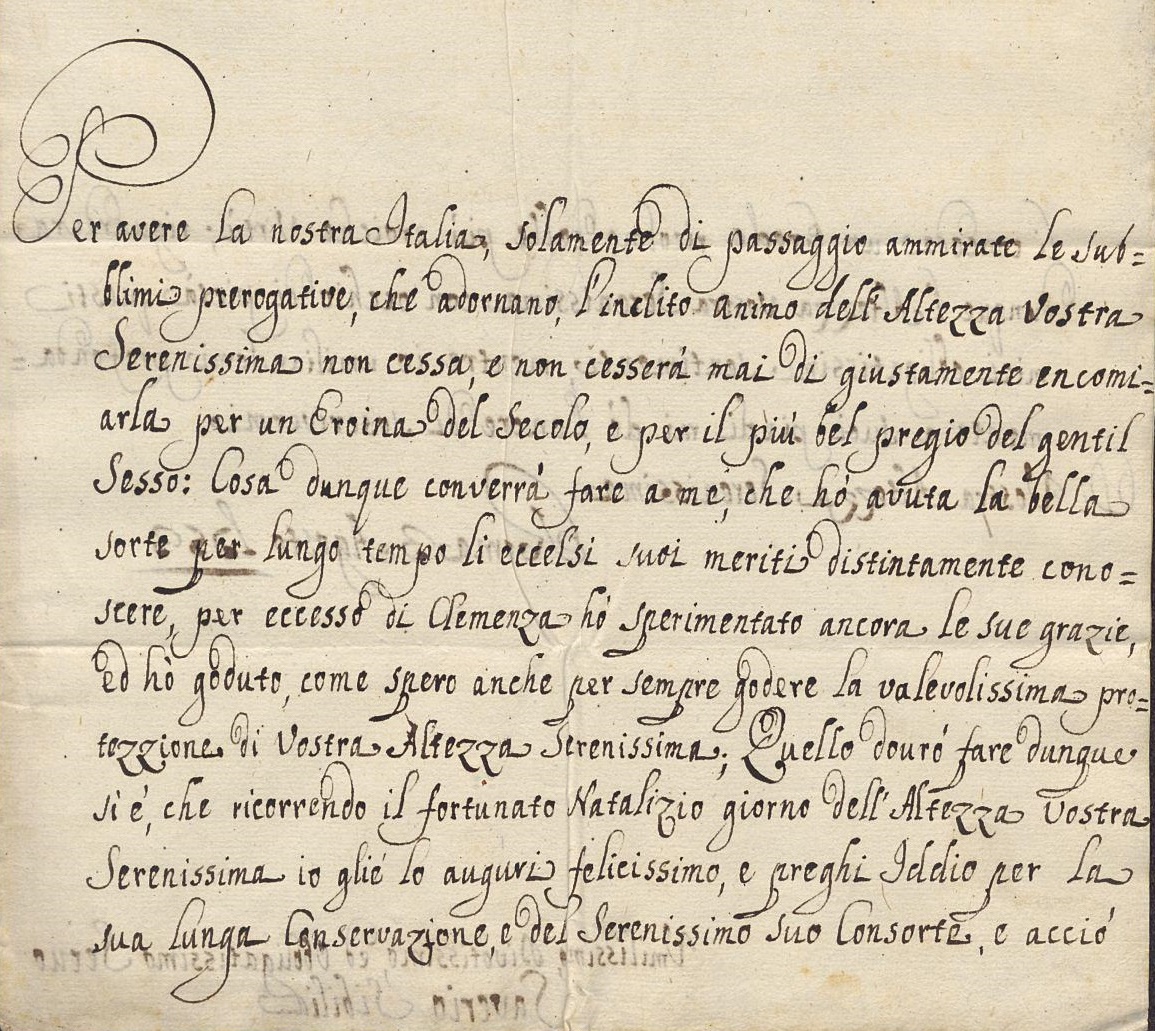 Per avere la nostra Italia, solamente di passaggio ammirate le sub=
blimi prerogative, che adornano, l'inclito animo dell'Altezza Vostra
Serenissima non cessa, e non cesserá mai di giustamente encomi=
arla per un Eroina del Secolo, e per il piú bel pregio del gentil
Sesso: Cosa dunque converrá fare a me, che hó avuta la bella
sorte per lungo tempo li eccelsi suoi meriti distintamente cono=
scere, per eccesso di Clemenza hó sperimentato ancora le sue grazie,
ed hò goduto, come spero anche per sempre godere la valevolissima pro=
tezzione di Vostra Altezza Serenissima; Quello dovró fare dunque
si é, che ricorrendo il fortunato Natalizio giorno dell'Altezza Vostra
Serenissima io glié lo auguri felicissimo, e preghi Iddio per la
sua lunga Conservazione, e del Serenissimo suo Consorte, e acció